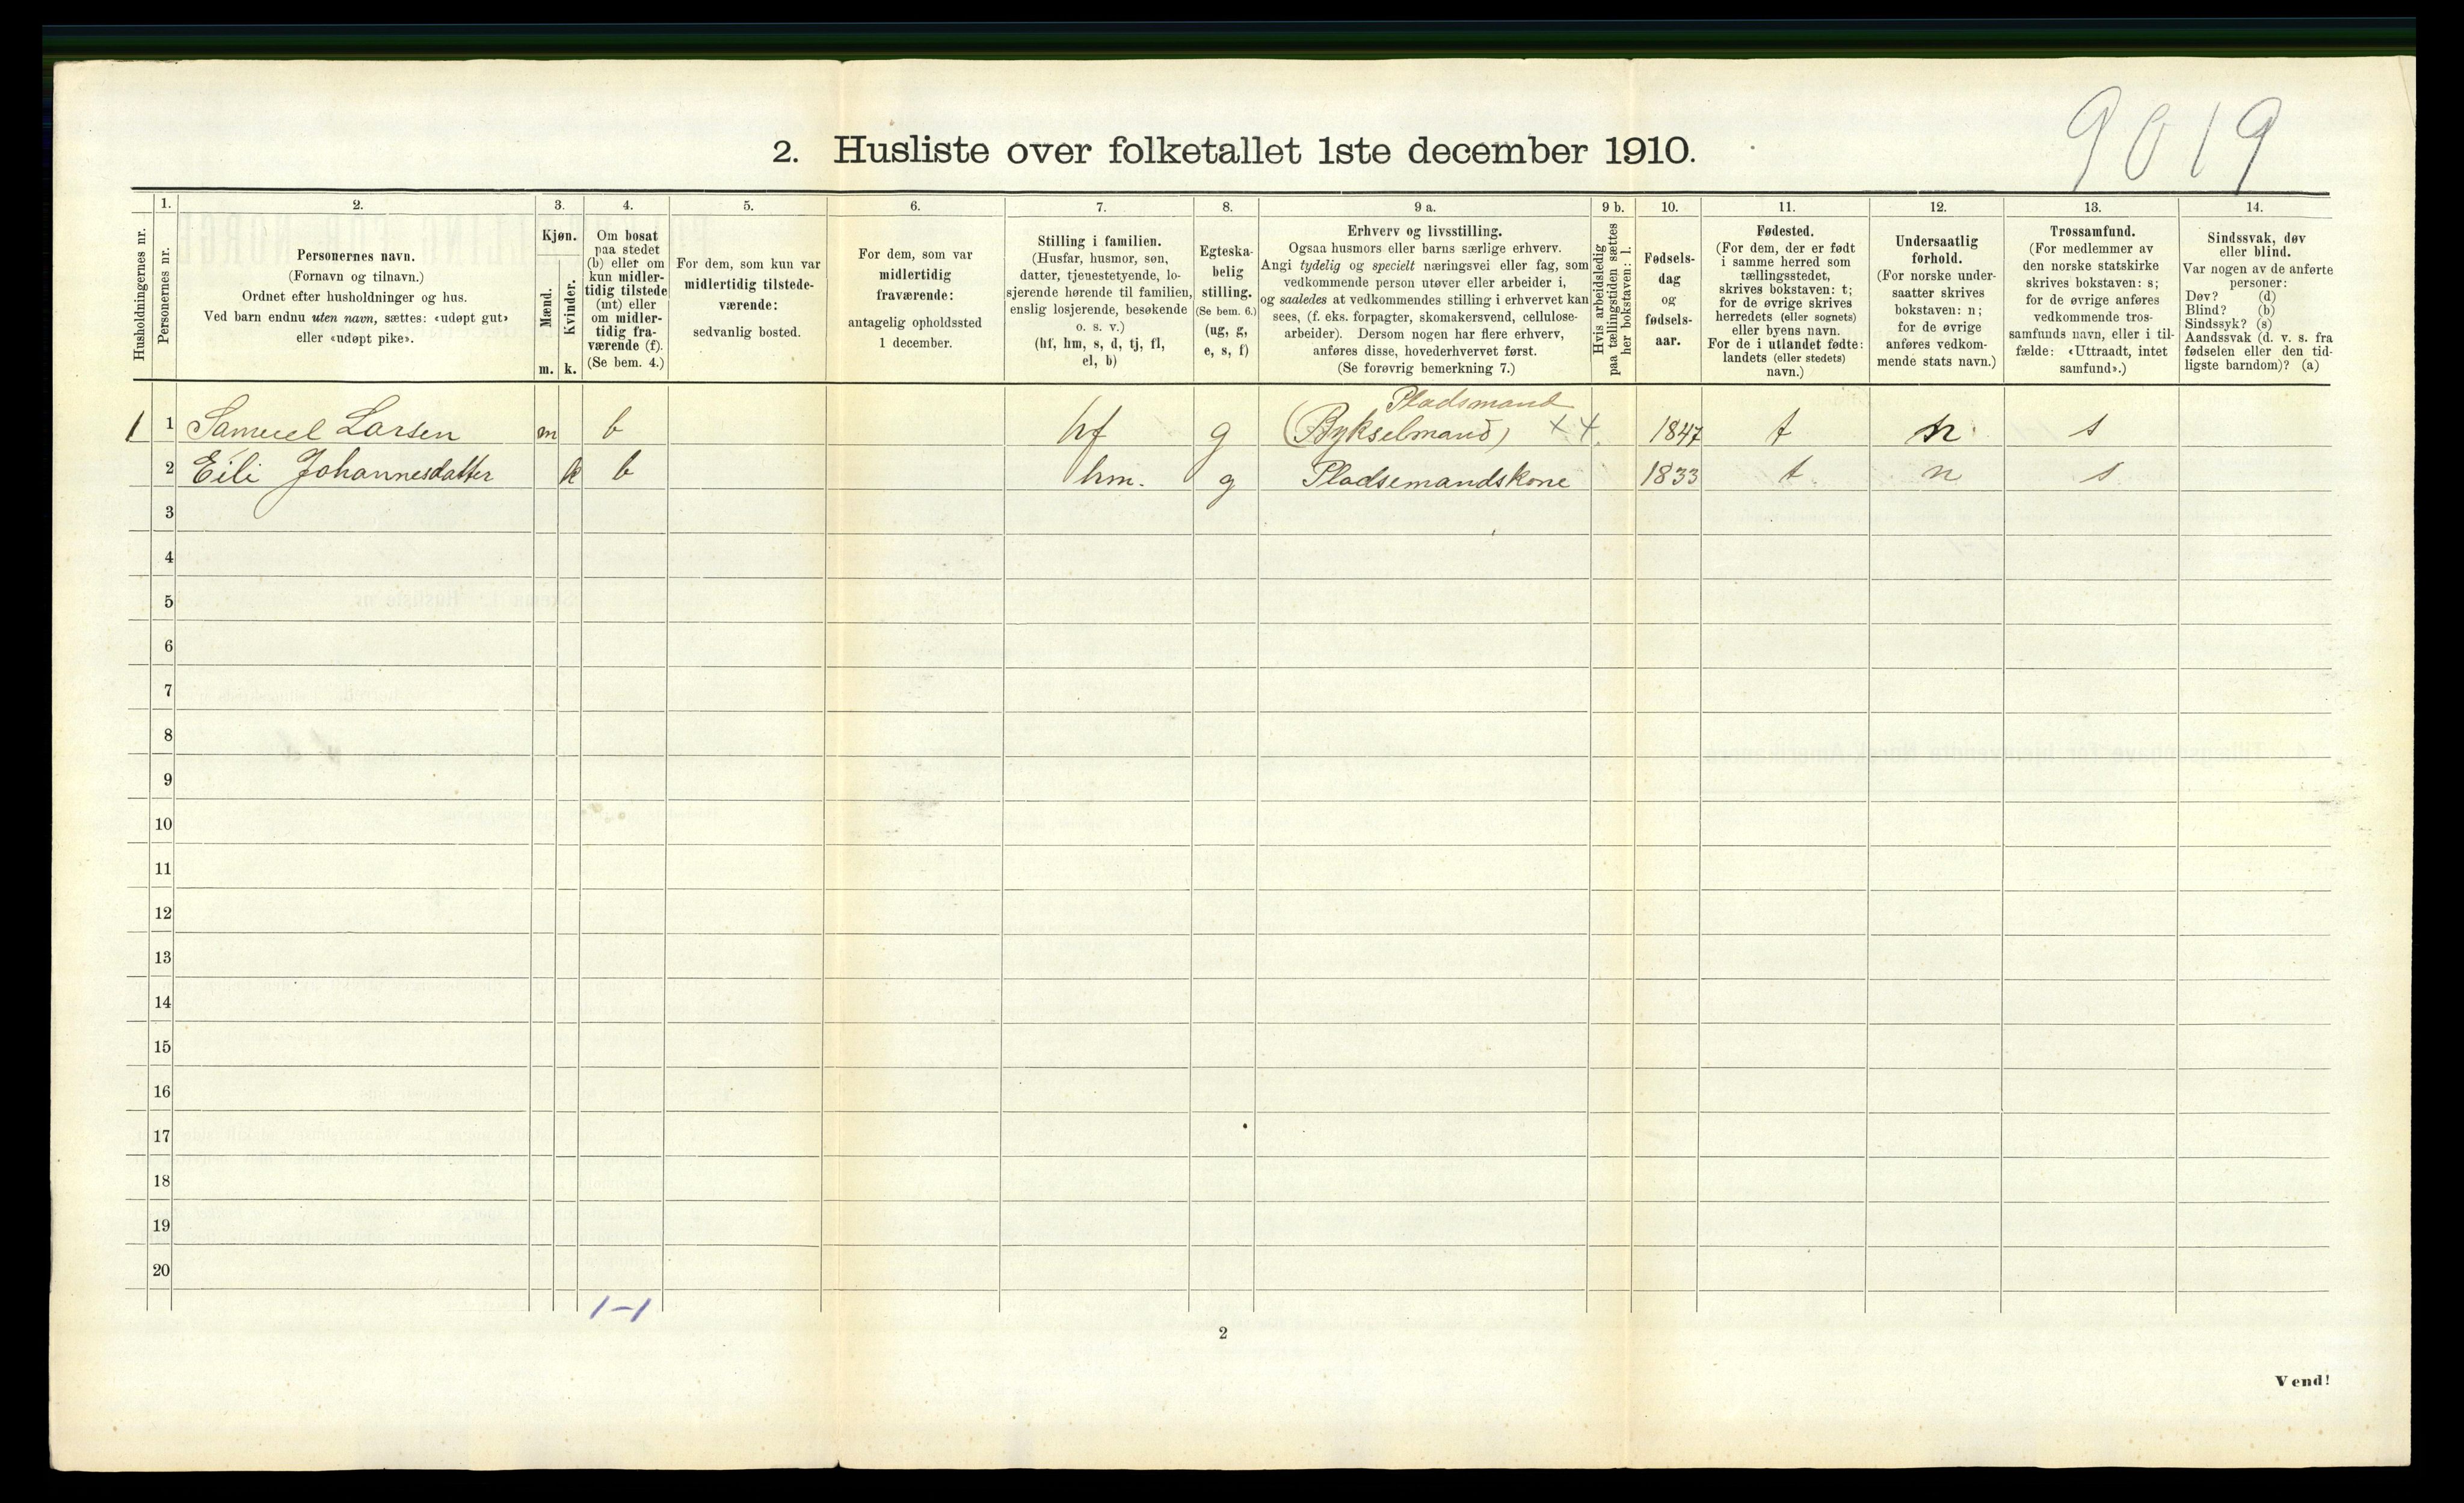 9019
2. Husliste over folketallet 1ste december 1910.
Husholdningernes nr.
1.
Personernes nr.
2.
Personernes navn.
(Fornavn og tilnavn.)
Ordnet efter husholdninger og hus.
Ved barn endnu uten navn, sættes: «udøpt gut»
eller «udøpt pike».
3.
Kjøn.
Mænd.
Kvinder.
m. k.
4.
Om bosat
paa stedet
(b) eller om
kun midler-
tidig tilstede
(mt) eller
om midler-
tidig fra-
værende (f).
(Se bem. 4.)
5.
For dem, som kun var
midlertidig tilstede-
værende:
sedvanlig bosted.
6.
For dem, som var
midlertidig
fraværende:
antagelig opholdssted
1 december.
7.
Stilling i familien.
(Husfar, husmor, søn,
datter, tjenestetyende, lo-
sjerende hørende til familien,
enslig losjerende, besøkende
o. s. v.)
(hf, hm, s, d, tj, fl,
el, b)
8.
Egteska-
belig
stilling.
(Se bem. 6.)
(ug, g,
e, s, f)
9 a.
Erhverv og livsstilling.
Ogsaa husmors eller barns særlige erhverv.
Angi tydelig og specielt næringsvei eller fag, som
vedkommende person utøver eller arbeider i,
og saaledes at vedkommendes stilling i erhvervet kan
sees, (f. eks. forpagter, skomakersvend, cellulose-
arbeider). Dersom nogen har flere erhverv,
anføres disse, hovederhvervet først.
(Se forøvrig bemerkning 7.)
9 b.
Hvis arbeidsledig
paa tællingstiden sættes
her bokstaven: l.
10.
Fødsels-
dag
og
fødsels-
aar.
11.
Fødested.
(For dem, der er født
i samme herred som
tællingsstedet,
skrives bokstaven: t;
for de øvrige skrives
herredets (eller sognets)
eller byens navn.
For de i utlandet fødte:
landets (eller stedets)
navn.)
12.
Undersaatlig
forhold.
(For norske under-
saatter skrives
bokstaven: n;
for de øvrige
anføres vedkom-
mende stats navn.)
13.
Trossamfund.
(For medlemmer av
den norske statskirke
skrives bokstaven: s;
for de øvrige anføres
vedkommende tros-
samfunds navn, eller i til-
fælde: «Uttraadt, intet
samfund».)
14.
Sindssvak, døv
eller blind.
Var nogen av de anførte
personer:
Døv? (d)
Blind? (b)
Sindssyk? (s)
Aandssvak (d. v. s. fra
fødselen eller den tid-
ligste barndom)? (a)
Pladsmand
1 1 Samuel Larsen m b hf g (Bykselmand) 1847 t n s
2 Eili Johannesdatter k b hm. g Pladsemandskone 1833 t n s
3
4
5
6
7
8
9
10
11
12
13
14
15
16
17
18
19
20
1-1
2
Vend!